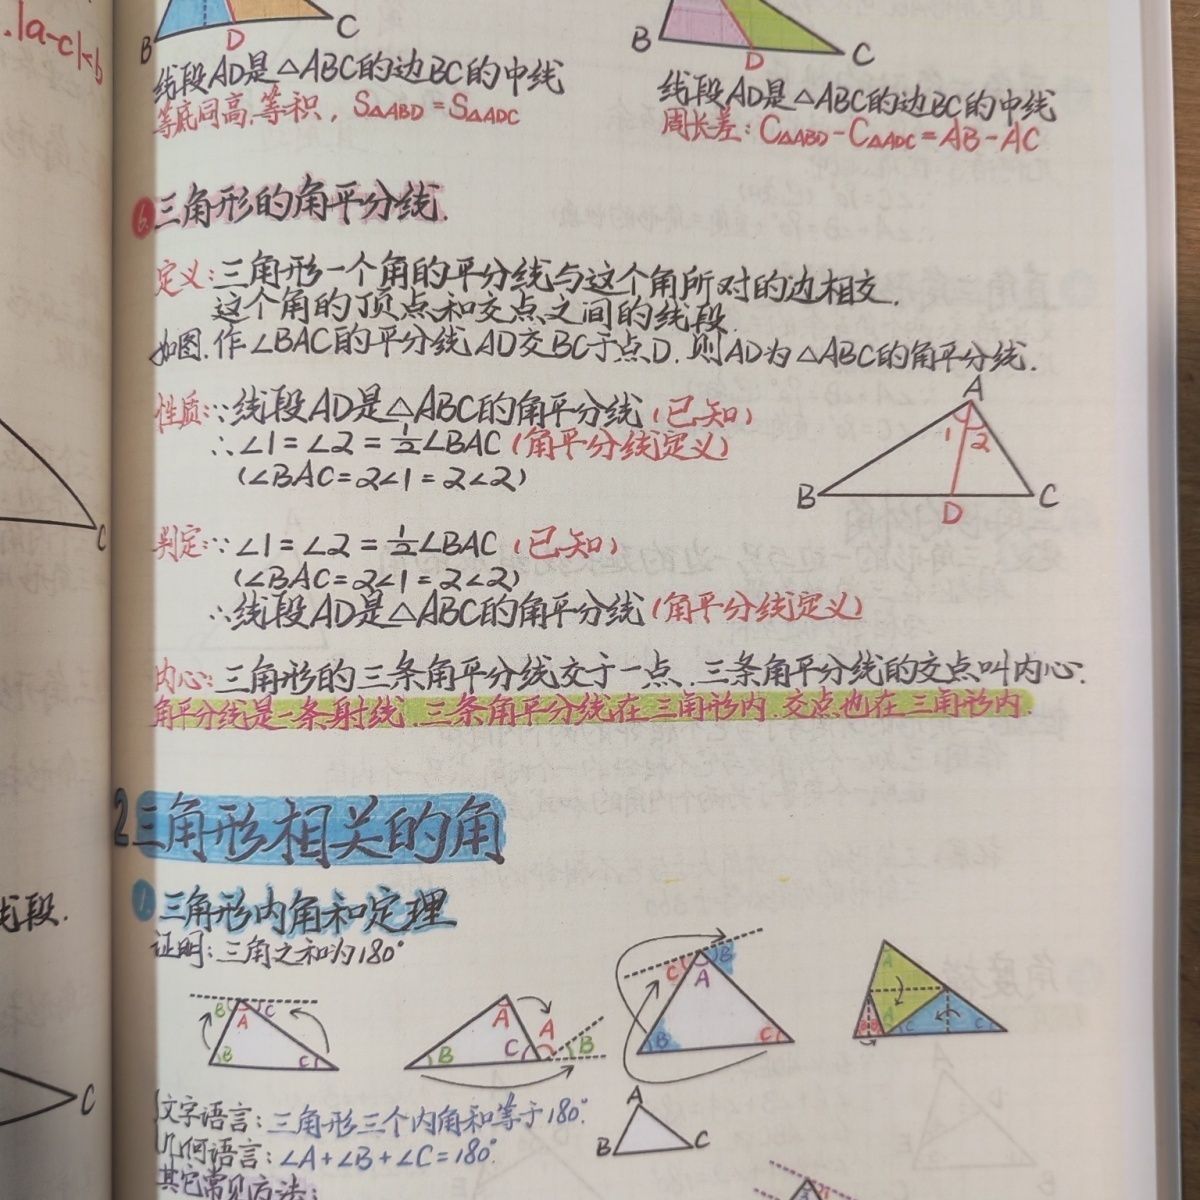 .|a-c|<b
B D C
B D C
线段AD是△ABC的边BC的中线
等底同高,等积, S△ABD=S△ADC
线段AD是△ABC的边BC的中线
周长差: C△ABD-C△ADC=AB-AC
6.三角形的角平分线.
定义:三角形一个角的平分线与这个角所对的边相交,
这个角的顶点和交点之间的线段.
如图,作∠BAC的平分线AD交BC于点D,则AD为△ABC的角平分线.
性质:∵线段AD是△ABC的角平分线(已知)
∴∠1=∠2=½∠BAC(角平分线定义)
(∠BAC=2∠1=2∠2)
A
1 2
B D C
判定:∵∠1=∠2=½∠BAC(已知)
(∠BAC=2∠1=2∠2)
∴线段AD是△ABC的角平分线(角平分线定义)
内心:三角形的三条角平分线交于一点,三条角平分线的交点叫内心.
角平分线是一条射线,三条角平分线在三角形内,交点也在三角形内.
2三角形相关的角
1.三角形内角和定理
证明:三角之和为180°
B A C
B C
A A
B C B
C A B
B C
A
B A C C
文字语言:三角形三个内角和等于180°.
几何语言:∠A+∠B+∠C=180°.
A
B C
其它常见方法:
C
线段.
C